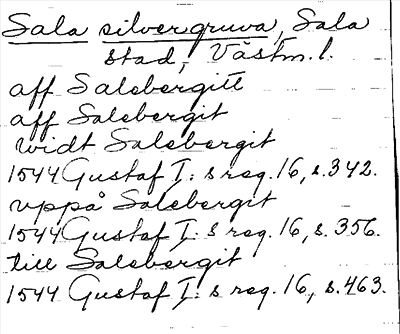 Sala silvergruva, Sala
stad, Västm. l.
aff Salebergitt
aff Salebergit
widt Salebergit
1544 Gustaf I: s reg. 16, s. 342.
vppå Salebergit
1544 Gustaf I: s reg. 16, s. 356.
till Salebergit
1544 Gustaf I: s reg. 16, s. 463.